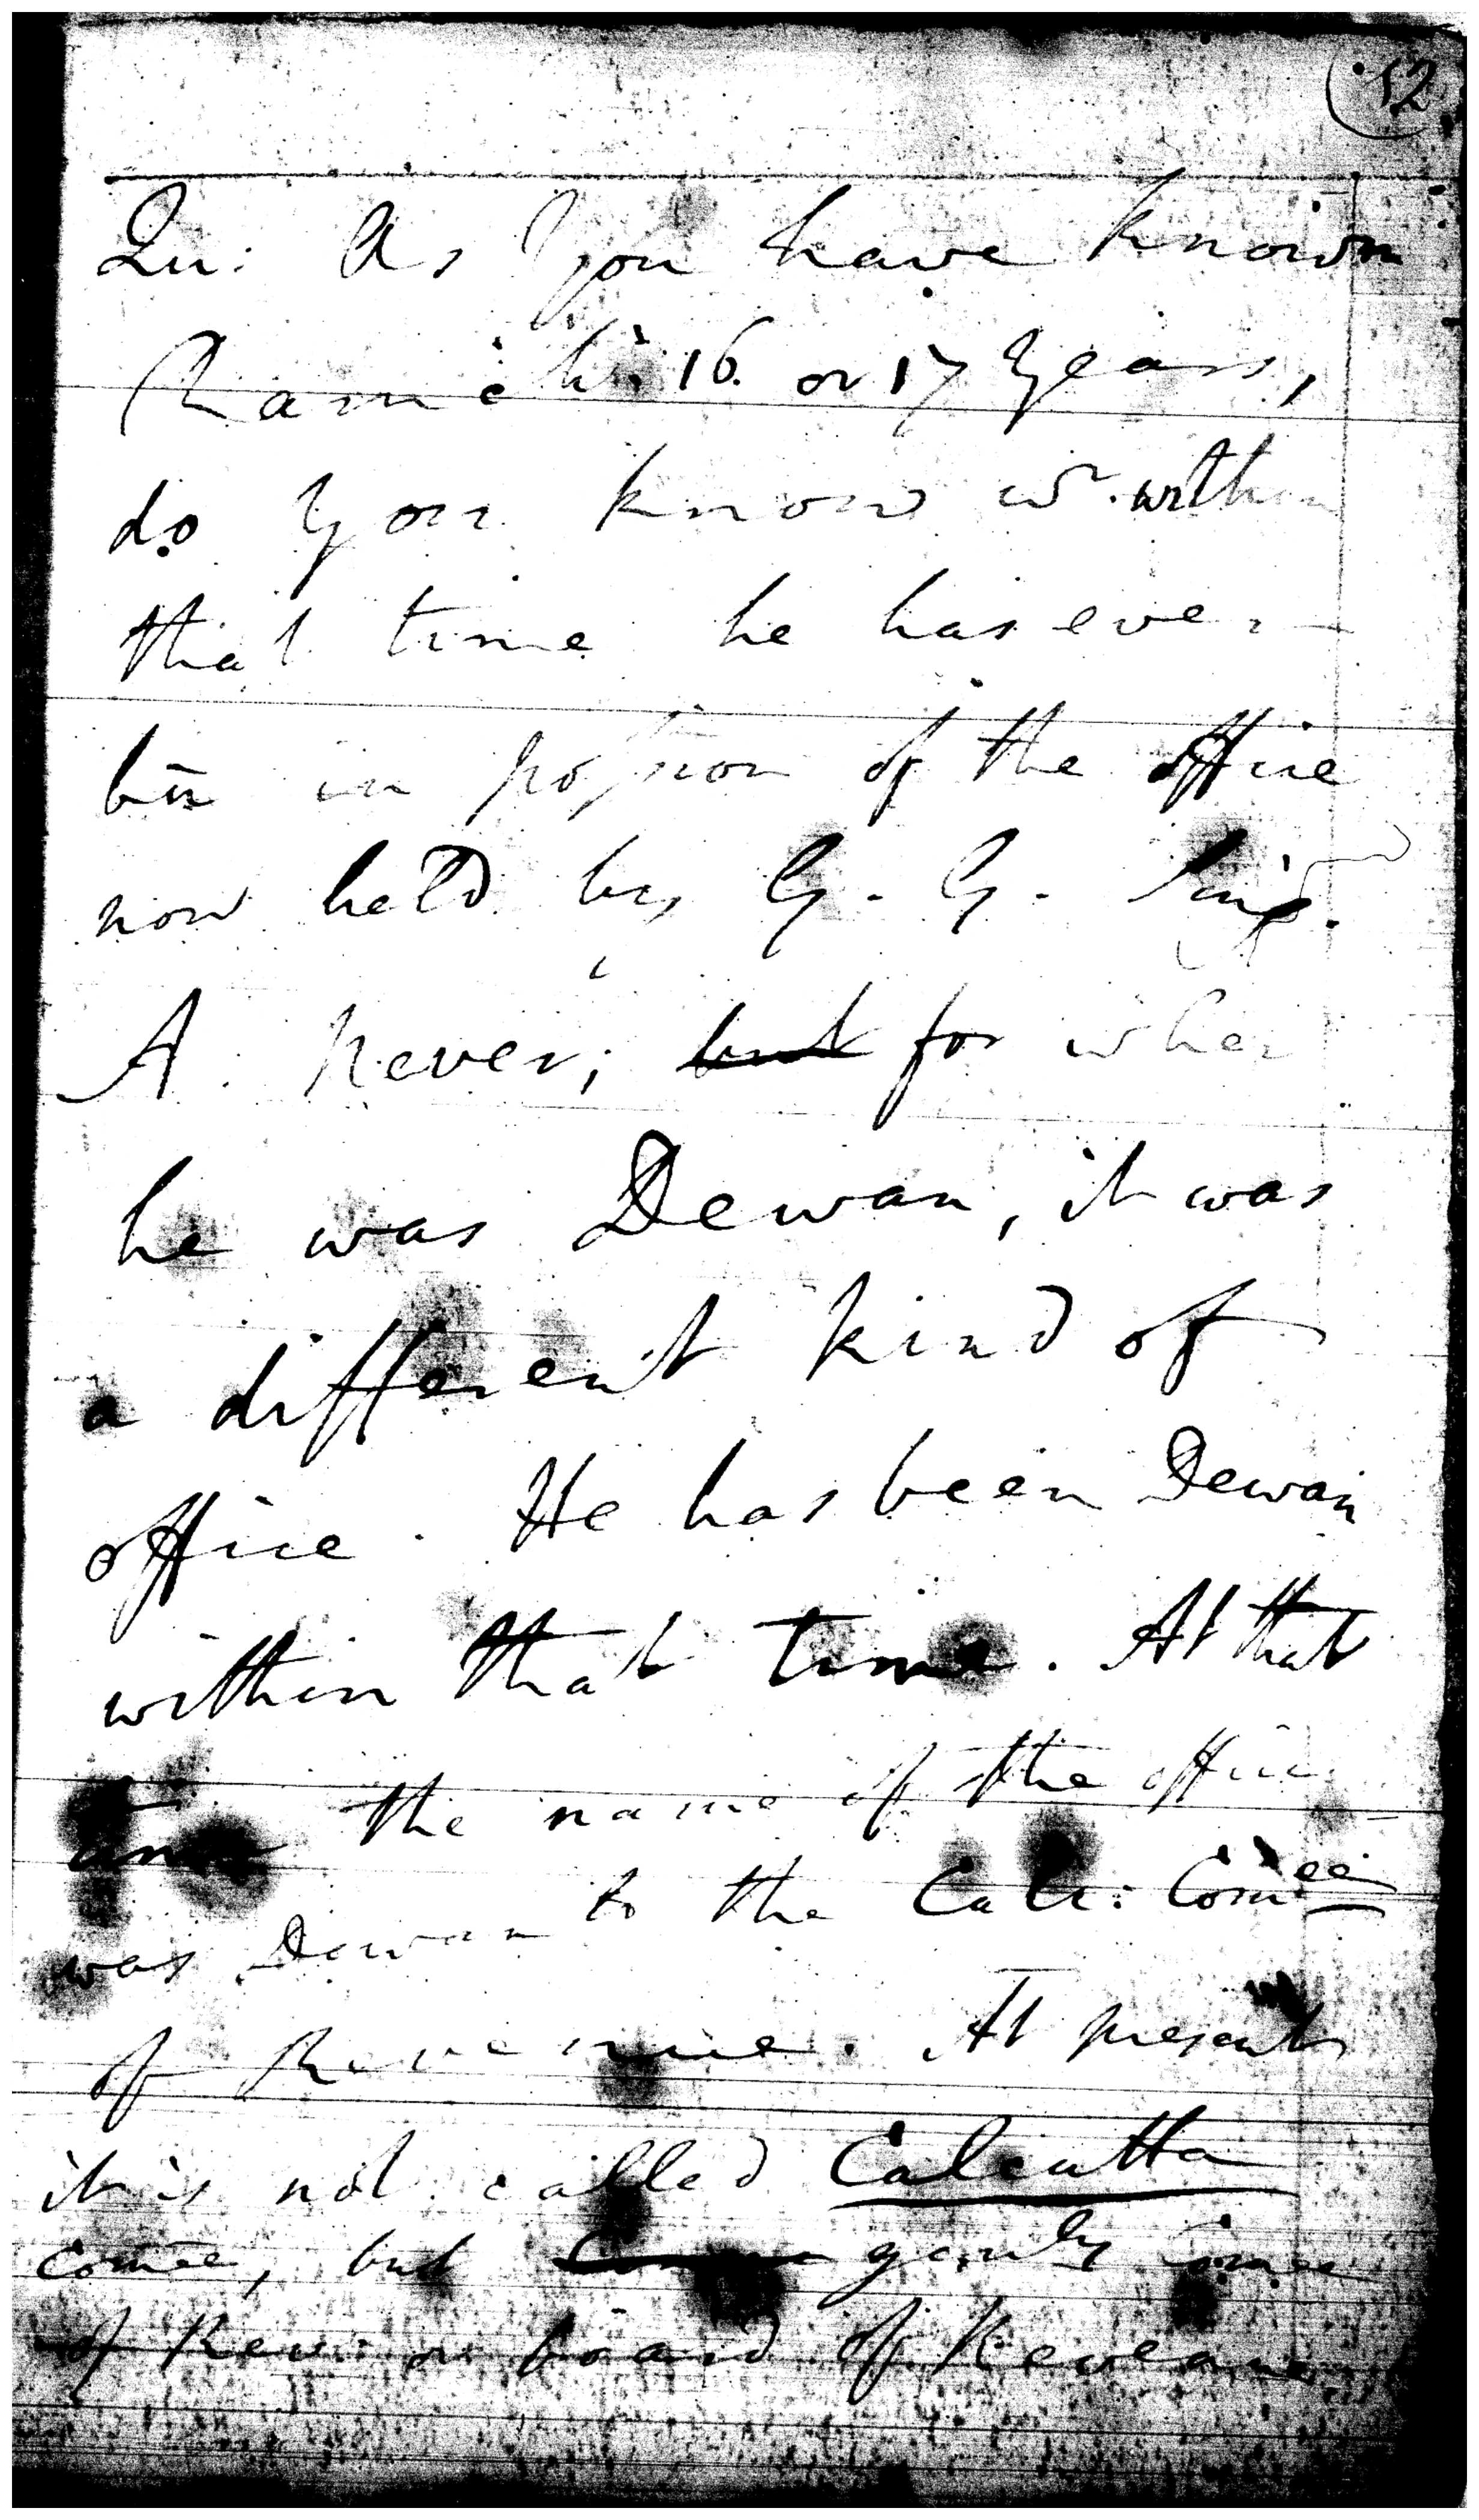 52
Qu: As you have known
Ramch: 16. or 17 Years,
do you know wr. within
that time he has ever
bn in possion of the office
now held by G. G. Sing.
A. Never; but for when
he was Dewan, it was
a different kind of
office. He has been Dewan
within that time. At that
time the name of the office
was Dewan to the Calc: Comee
of Revenue. At present
it is not called Calcutta
Comee, but genly Comee
of Rev: or board of Revenue